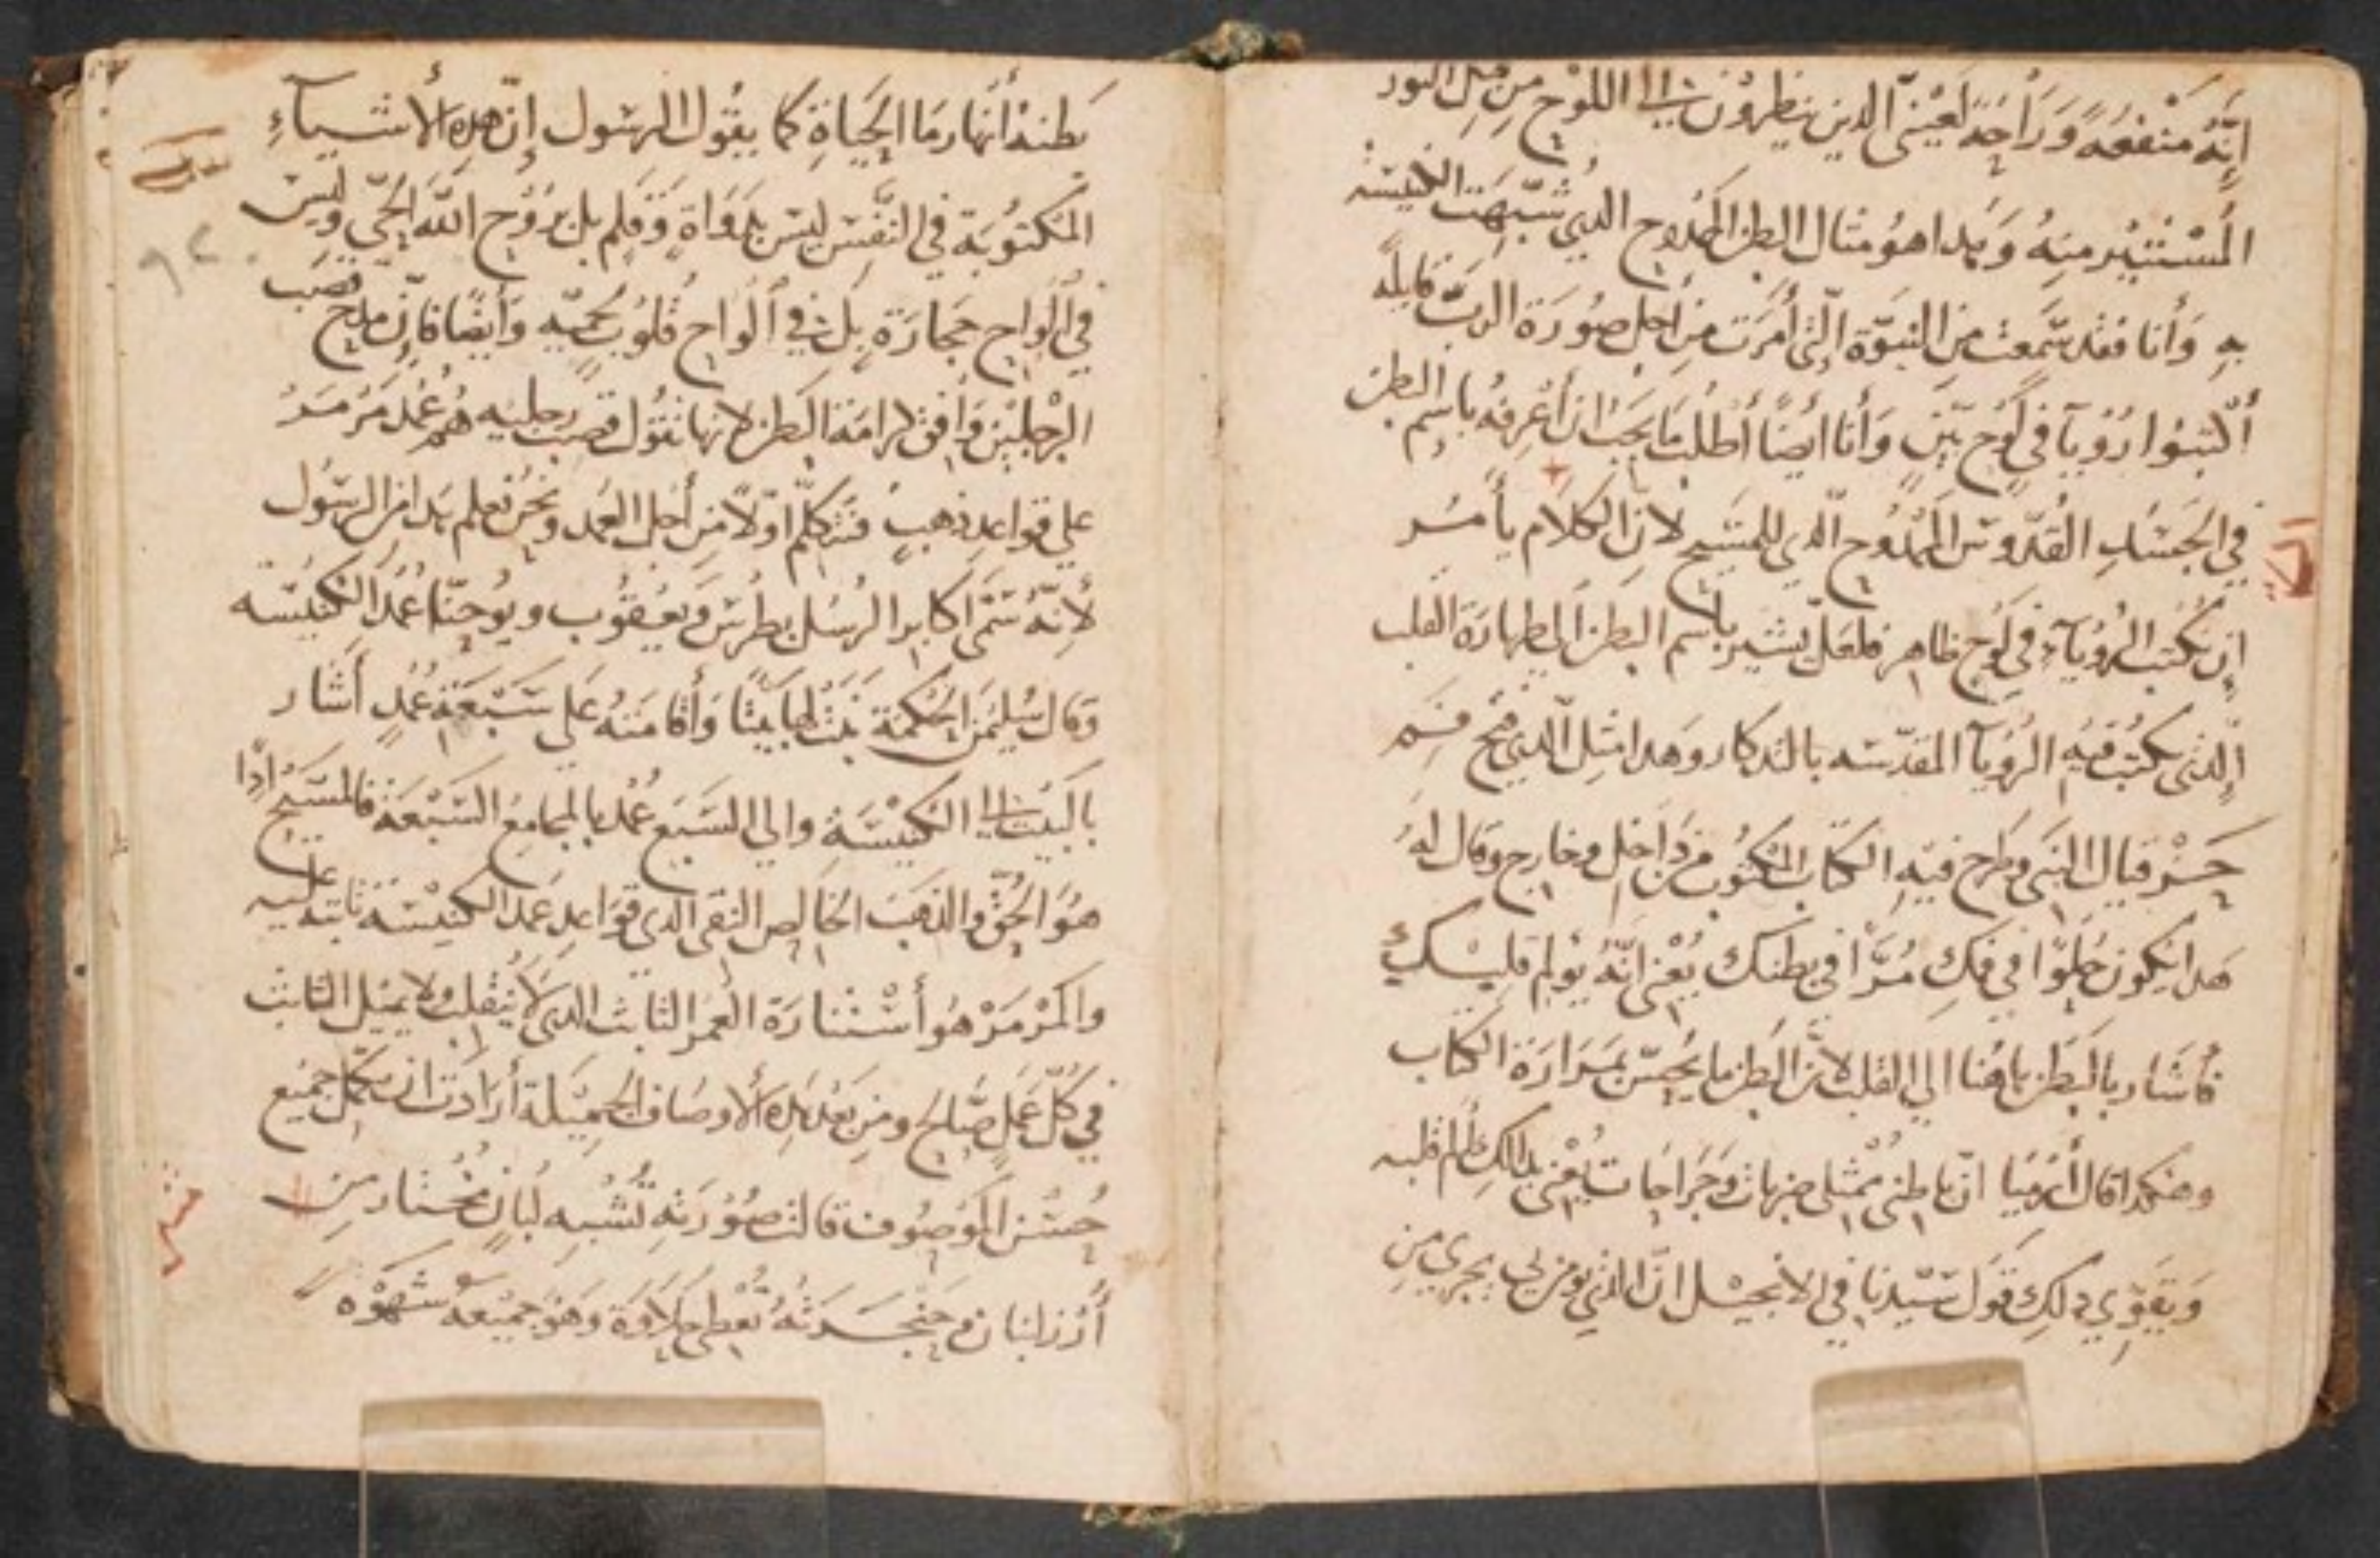 إنَّه منفعَه وَرَاحَه لعَيْنيّ الدين ينظروُن إلي اللوْح من قبل النور
المسْتنيْر منهُ وَبهداهوُ مثال البطن الممدوح الدي شبّهت الكنيسَه
بهِ وَأنا فقد سَمعت من النبوّة الّتي أمرَت من اجل صوُرَة الربّ قايلَه
أكتبوُا رُؤيآ في لَوْح بيّنٍ وَأنا ايضًا أطلُب مَا يجَب ان أعْرفهُ باسم البطن
في الجَسَد القُدّوس الممْدُوح الّدي للمسَيح لانّ الكلام يأمُر
ان نكتب الرُؤيآء في لَوْح ظاهر فلعَل يشير باسم البطن الي طهارَة القلب
الّدي نكتبُ فيه الرؤيآ المقدّسَه بالتدكار وهدا مثل الّدي فتح فم
حَزْقيال النبَي وَطرح فيهِ الكتاب المكتوُب من دَاخل وخارج وقال لهُ
هَدا يكون حُلوًا في فمك مُرًّا في بطنك يَعْني انّهُ يوُلم
فأشار بالبَطن هاهُنا الي القلب لانّ البَطن ما يحُسّ بمَرَارَة الكتاب
وهكدا قال أرميَا انّ باطني ممْتلي ضربات وَجَرَاحَات يَعْني بدلك ألم قلبه
وَيقوّي دلك قوَل سَيّدنا في الانجيْل انّ الدي يومن بي يجري من
بَطنهْ أنهار مَا الحَيَاةِ كما يقوُل الرسَوُل إنّ هده الأشيآءِ
المكتوُبَة في النَّفس ليسَ بدَوَاةٍ وَقَلم بل برُوْح اللّه الحَيّ وليسَ
في ألوَاح حجارَةٍ بلَ في ألوَاح قُلوُب لحميّه وَأيضًا فإنّ مدْح قصَب
الرجليْن وَافق كرامَة البَطن لانها تقوُل قصَب رجليه هُم عُمد مَرْمَرُ
علي قواعد دهبٍ فنَتكلّم اوّلاً من أجل العمَد ونحنُ نعلم هَدا من الرسَوُل
لأنّهُ سَمّي اكابر الرسُل بطرُس وَيعقوُب ويوُحنّا عُمدَ الكنيسَه
وقال سُليمَن الحكمَة بَنَتْ لها بَيتًا وَأقامَتهُ عَلي سَبْعَة عُمُدٍ أشار
بالبَيت الي الكنيْسَةِ والي السَبع عُمْد بالمجامِع السَبْعَة فالمسَيح إدًا
هوَ الحَقّ والدَهبَ الخالص النقي الدي قوَاعِد عمَد الكنيْسَه ثابته عليه
والمَرْمَرْ هوُ أسْتنارَة العمر الثابت الدي لا ينقلب ولا يميْل الثابت
في كُلّ عمَل صَالح ومن بَعْد هَده الأوصَاف الجميْلة أرَادت ان تكمّل جميْع
حُسْن الموَصوُف قالت صوُرَته تُشْبه لُبانٍ مخُتار من
أرْز لبنان حَنْجَرَتهُ تُعْطي حَلاوَة وَهوَ جميْعهُ شهْوَة